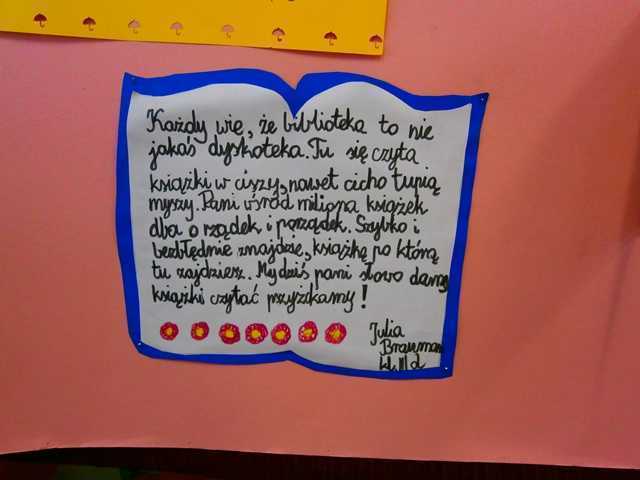 Każdy wie, że biblioteka to nie
jakaś dyskoteka. Tu się czyta
książki w ciszy, nawet cicho tupią
myszy. Pani wśród miliona książek
dba o rządek i porządek. Szybko i
bezbłędnie znajdzie, książkę po którą
tu zajdziesz. My dziś pani słowo damy
książki czytać przyżkamy!
Julia
Brauman
kl. III d